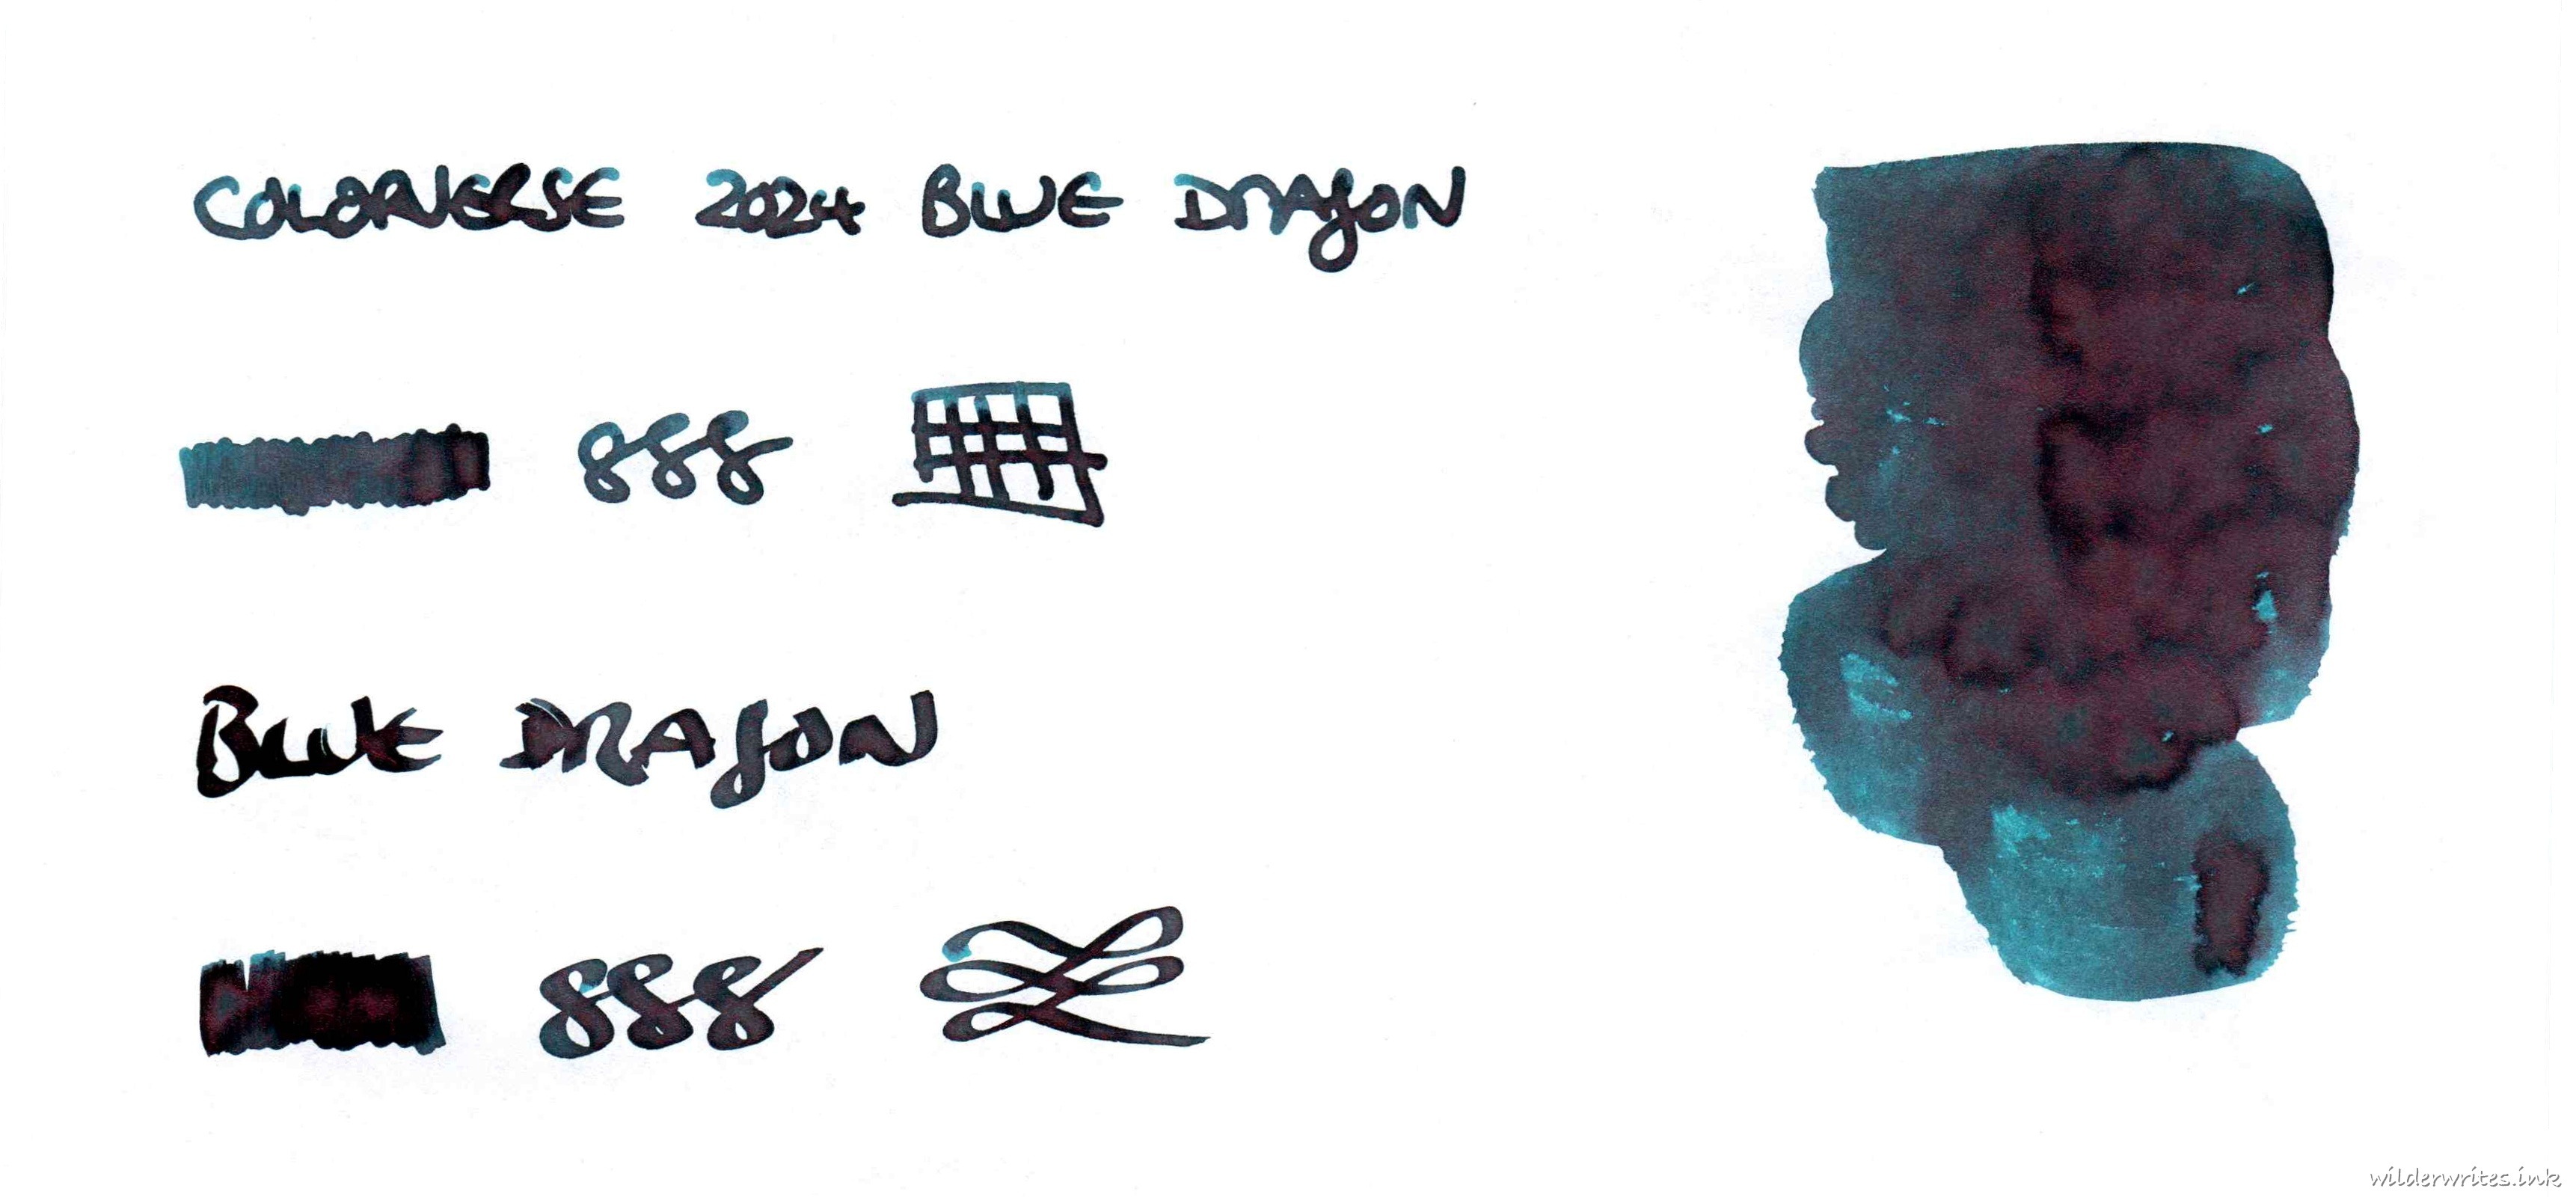 COLORVERSE 2024 BLUE DRAGON
888
BLUE DRAGON
888
wilderwrites.ink